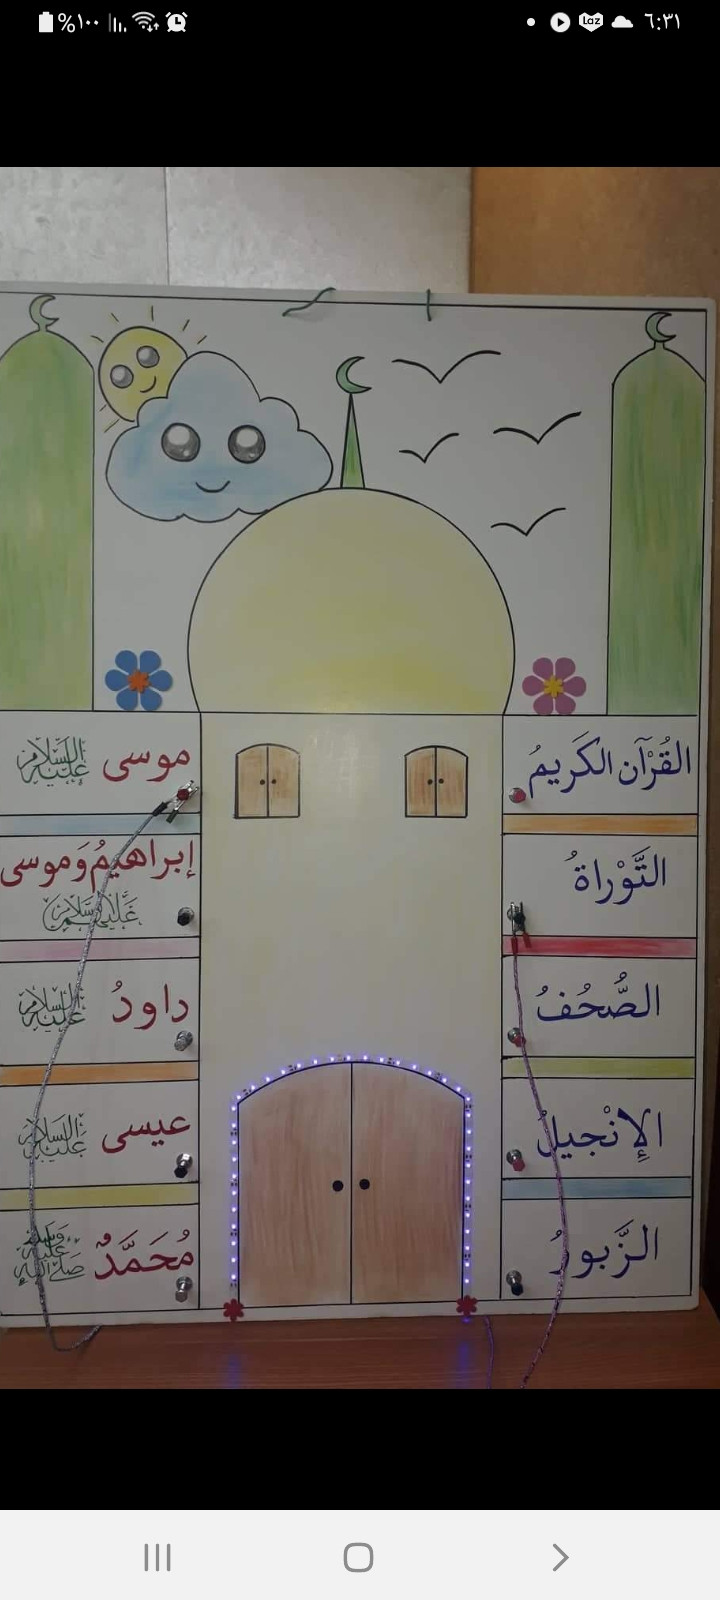 %١٠٠
laz
٦:٣١
القُرْآن الكَرِيمُ
التَّوْراةُ
الصُّحُفُ
الإِنْجيلُ
الزَّبورُ
موسى عليه السلام
إبراهيمُ وَموسى
عليهما السلام
داودُ عليه السلام
عيسى عليه السلام
مُحَمَّدٌ صلى الله عليه وسلم